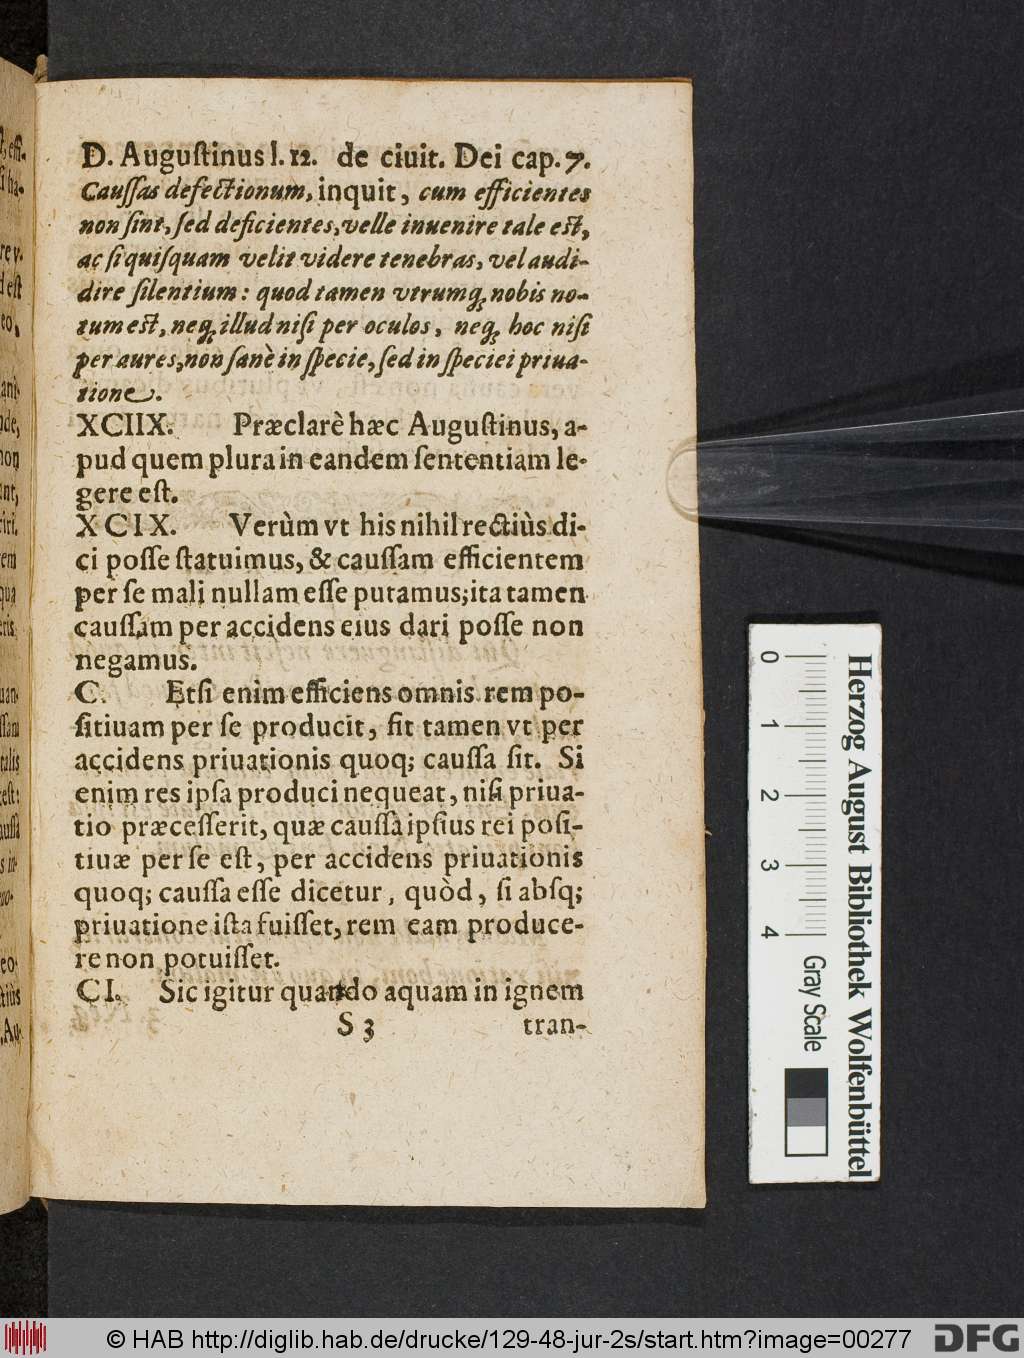 D. Auguſtinus l. 12. de ciuit. Dei cap. 7.
Cauſſas defectionum, inquit, cum efficientes
non ſint, ſed deficientes, velle inuenire tale eſt,
ac ſi quiſquam velit videre tenebras, vel audi-
dire ſilentium: quod tamen vtrumq; nobis no-
tum eſt, neq; illud niſi per oculos, neq; hoc niſi
per aures, non ſanè in ſpecie, ſed in ſpeciei priua-
tione.
XCIIX. Præclarè hæc Auguſtinus, a-
pud quem plura in eandem ſententiam le-
gere eſt.
XCIX. Verùm vt his nihil rectiùs di-
ci poſſe ſtatuimus, & cauſſam efficientem
per ſe mali nullam eſſe putamus; ita tamen
cauſſam per accidens eius dari poſſe non
negamus.
C. Etſi enim efficiens omnis rem po-
ſitiuam per ſe producit, fit tamen vt per
accidens priuationis quoq; cauſſa ſit. Si
enim res ipſa produci nequeat, niſi priua-
tio præceſſerit, quæ cauſſa ipſius rei poſi-
tiuæ per ſe eſt, per accidens priuationis
quoq; cauſſa eſſe dicetur, quòd, ſi abſq;
priuatione iſta fuiſſet, rem eam produce-
re non potuiſſet.
CI. Sic igitur quando aquam in ignem
S 3 tran-
0 1 2 3 4
Gray Scale
Herzog August Bibliothek Wolfenbüttel
© HAB http://diglib.hab.de/drucke/129-48-jur-2s/start.htm?image=00277
DFG